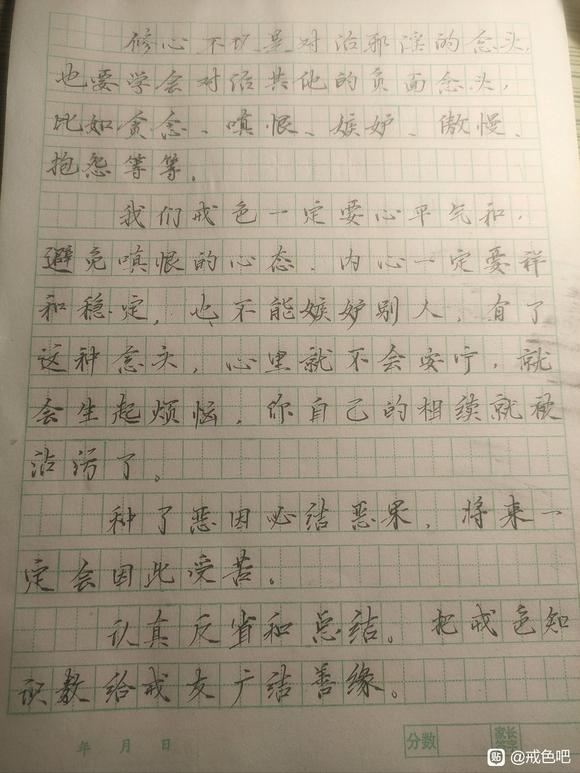 修心不光是对治邪淫的念头，
也要学会对治其他的负面念头，
比如贪念、嗔恨、嫉妒、傲慢、
抱怨等等。
我们戒色一定要心平气和，
避免嗔恨的心态，内心一定要祥
和稳定，也不能嫉妒别人，有了
这种念头，心里就不会安宁，就
会生起烦恼，你自己的相续就被
沾污了。
种了恶因必结恶果，将来一
定会因此受苦。
认真反省和总结。把戒色知
识教给戒友广结善缘。
年 月 日
分数
家长签字
贴 @戒色吧